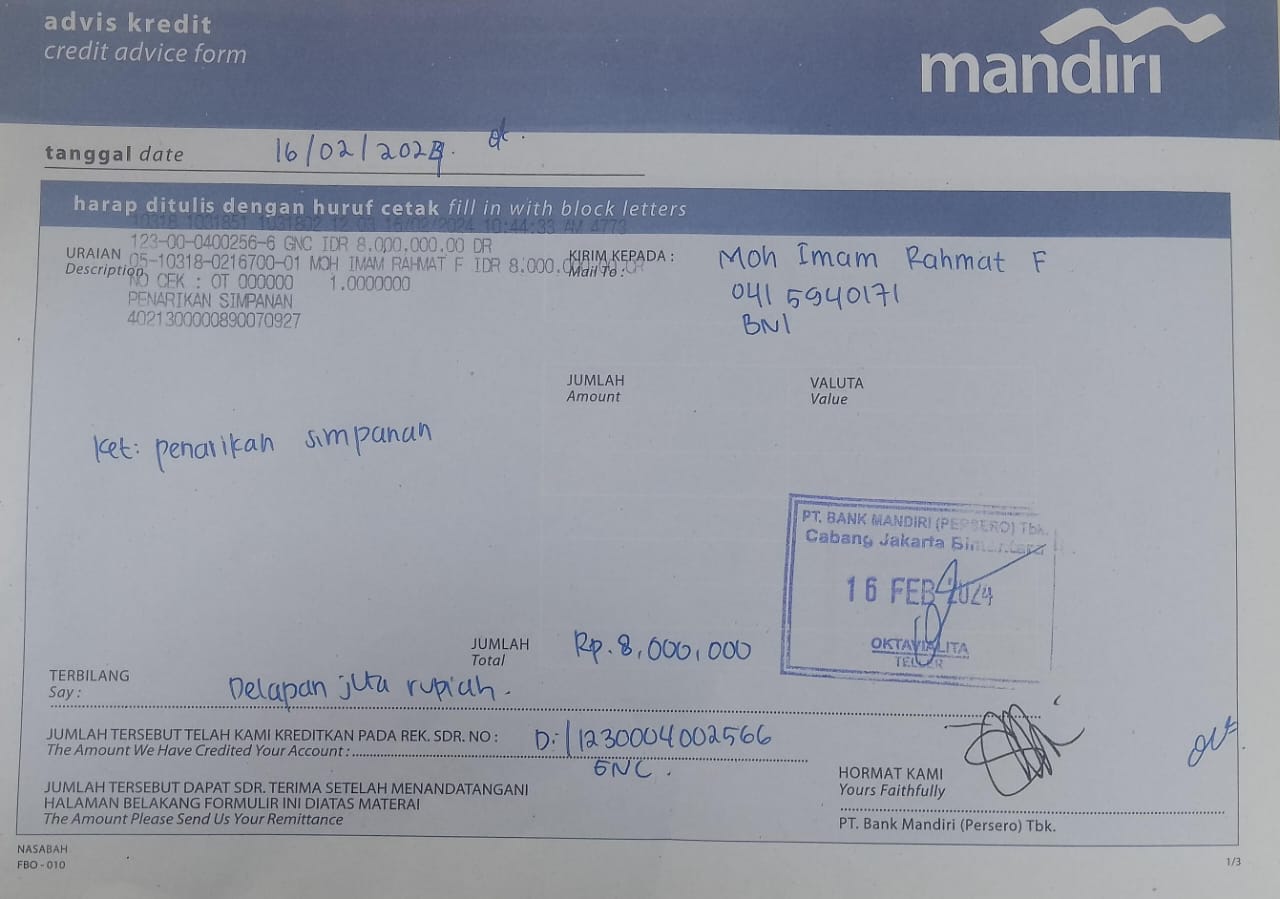 advis kredit
credit advice form
mandiri
tanggal date 16/02/2024.
harap ditulis dengan huruf cetak fill in with block letters
10318 1031851 1031802 12 03 16/02/2024 10:44:33 AM 4773
URAIAN
Description
123-00-0400256-6 GNC IDR 8.000.000.00 DR
05-10318-0216700-01 MOH IMAM RAHMAT F IDR 8.000.000.00 CR
NO CEK : OT 000000 1.0000000
PENARIKAN SIMPANAN
4021300000890070927
KIRIM KEPADA :
Mail To :
Moh Imam Rahmat F
041 5940171
BNI
JUMLAH
Amount
VALUTA
Value
Ket: penarikan simpanan
PT. BANK MANDIRI (PERSERO) Tbk.
Cabang Jakarta
16 FEB 2024
OKTAVIALITA
TELLER
JUMLAH
Total
Rp. 8,000,000
TERBILANG
Say :
Delapan juta rupiah.
JUMLAH TERSEBUT TELAH KAMI KREDITKAN PADA REK. SDR. NO :
The Amount We Have Credited Your Account :
D: 1230004002566
GNC.
JUMLAH TERSEBUT DAPAT SDR. TERIMA SETELAH MENANDATANGANI
HALAMAN BELAKANG FORMULIR INI DIATAS MATERAI
The Amount Please Send Us Your Remittance
HORMAT KAMI
Yours Faithfully
PT. Bank Mandiri (Persero) Tbk.
NASABAH
FBO - 010
1/3